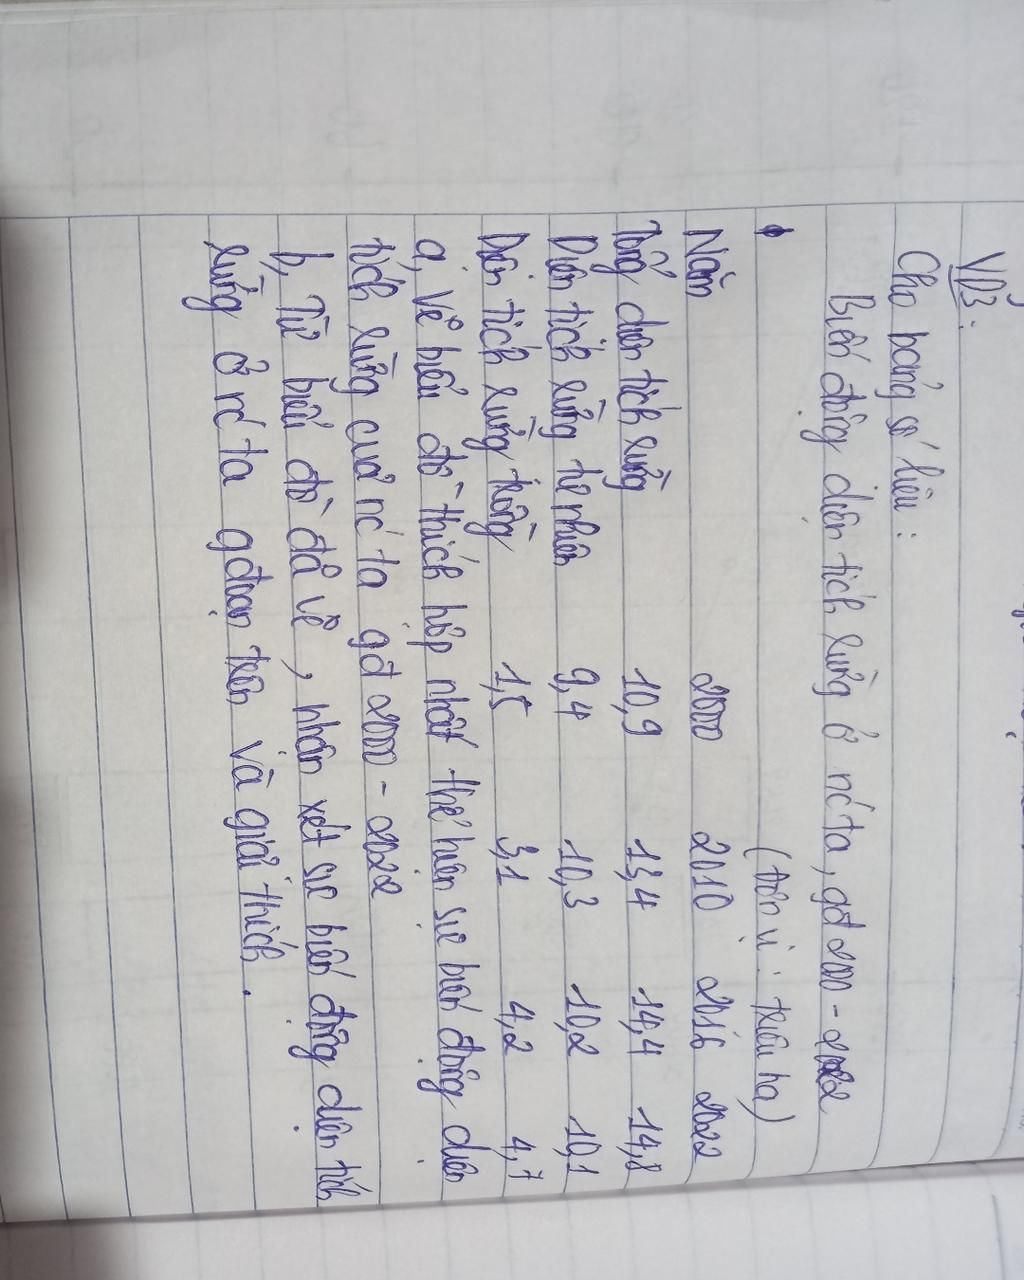 VD3:
Cho bảng số liệu:
Biến động diện tích rừng ở nc ta, gđ 2000 - 2022
(đơn vị: triệu ha)
Năm 2000 2010 2016 2022
Tổng diện tích rừng 10,9 13,4 14,4 14,8
Diện tích rừng tự nhiên 9,4 10,3 10,2 10,1
Diện tích rừng trồng 1,5 3,1 4,2 4,7
a, Vẽ biểu đồ thích hợp nhất thể hiện sự biến động diện
tích rừng của nc ta gđ 2000 - 2022
b, Từ biểu đồ đã vẽ, nhận xét sự biến động diện tích
rừng ở nc ta gđoạn trên và giải thích.